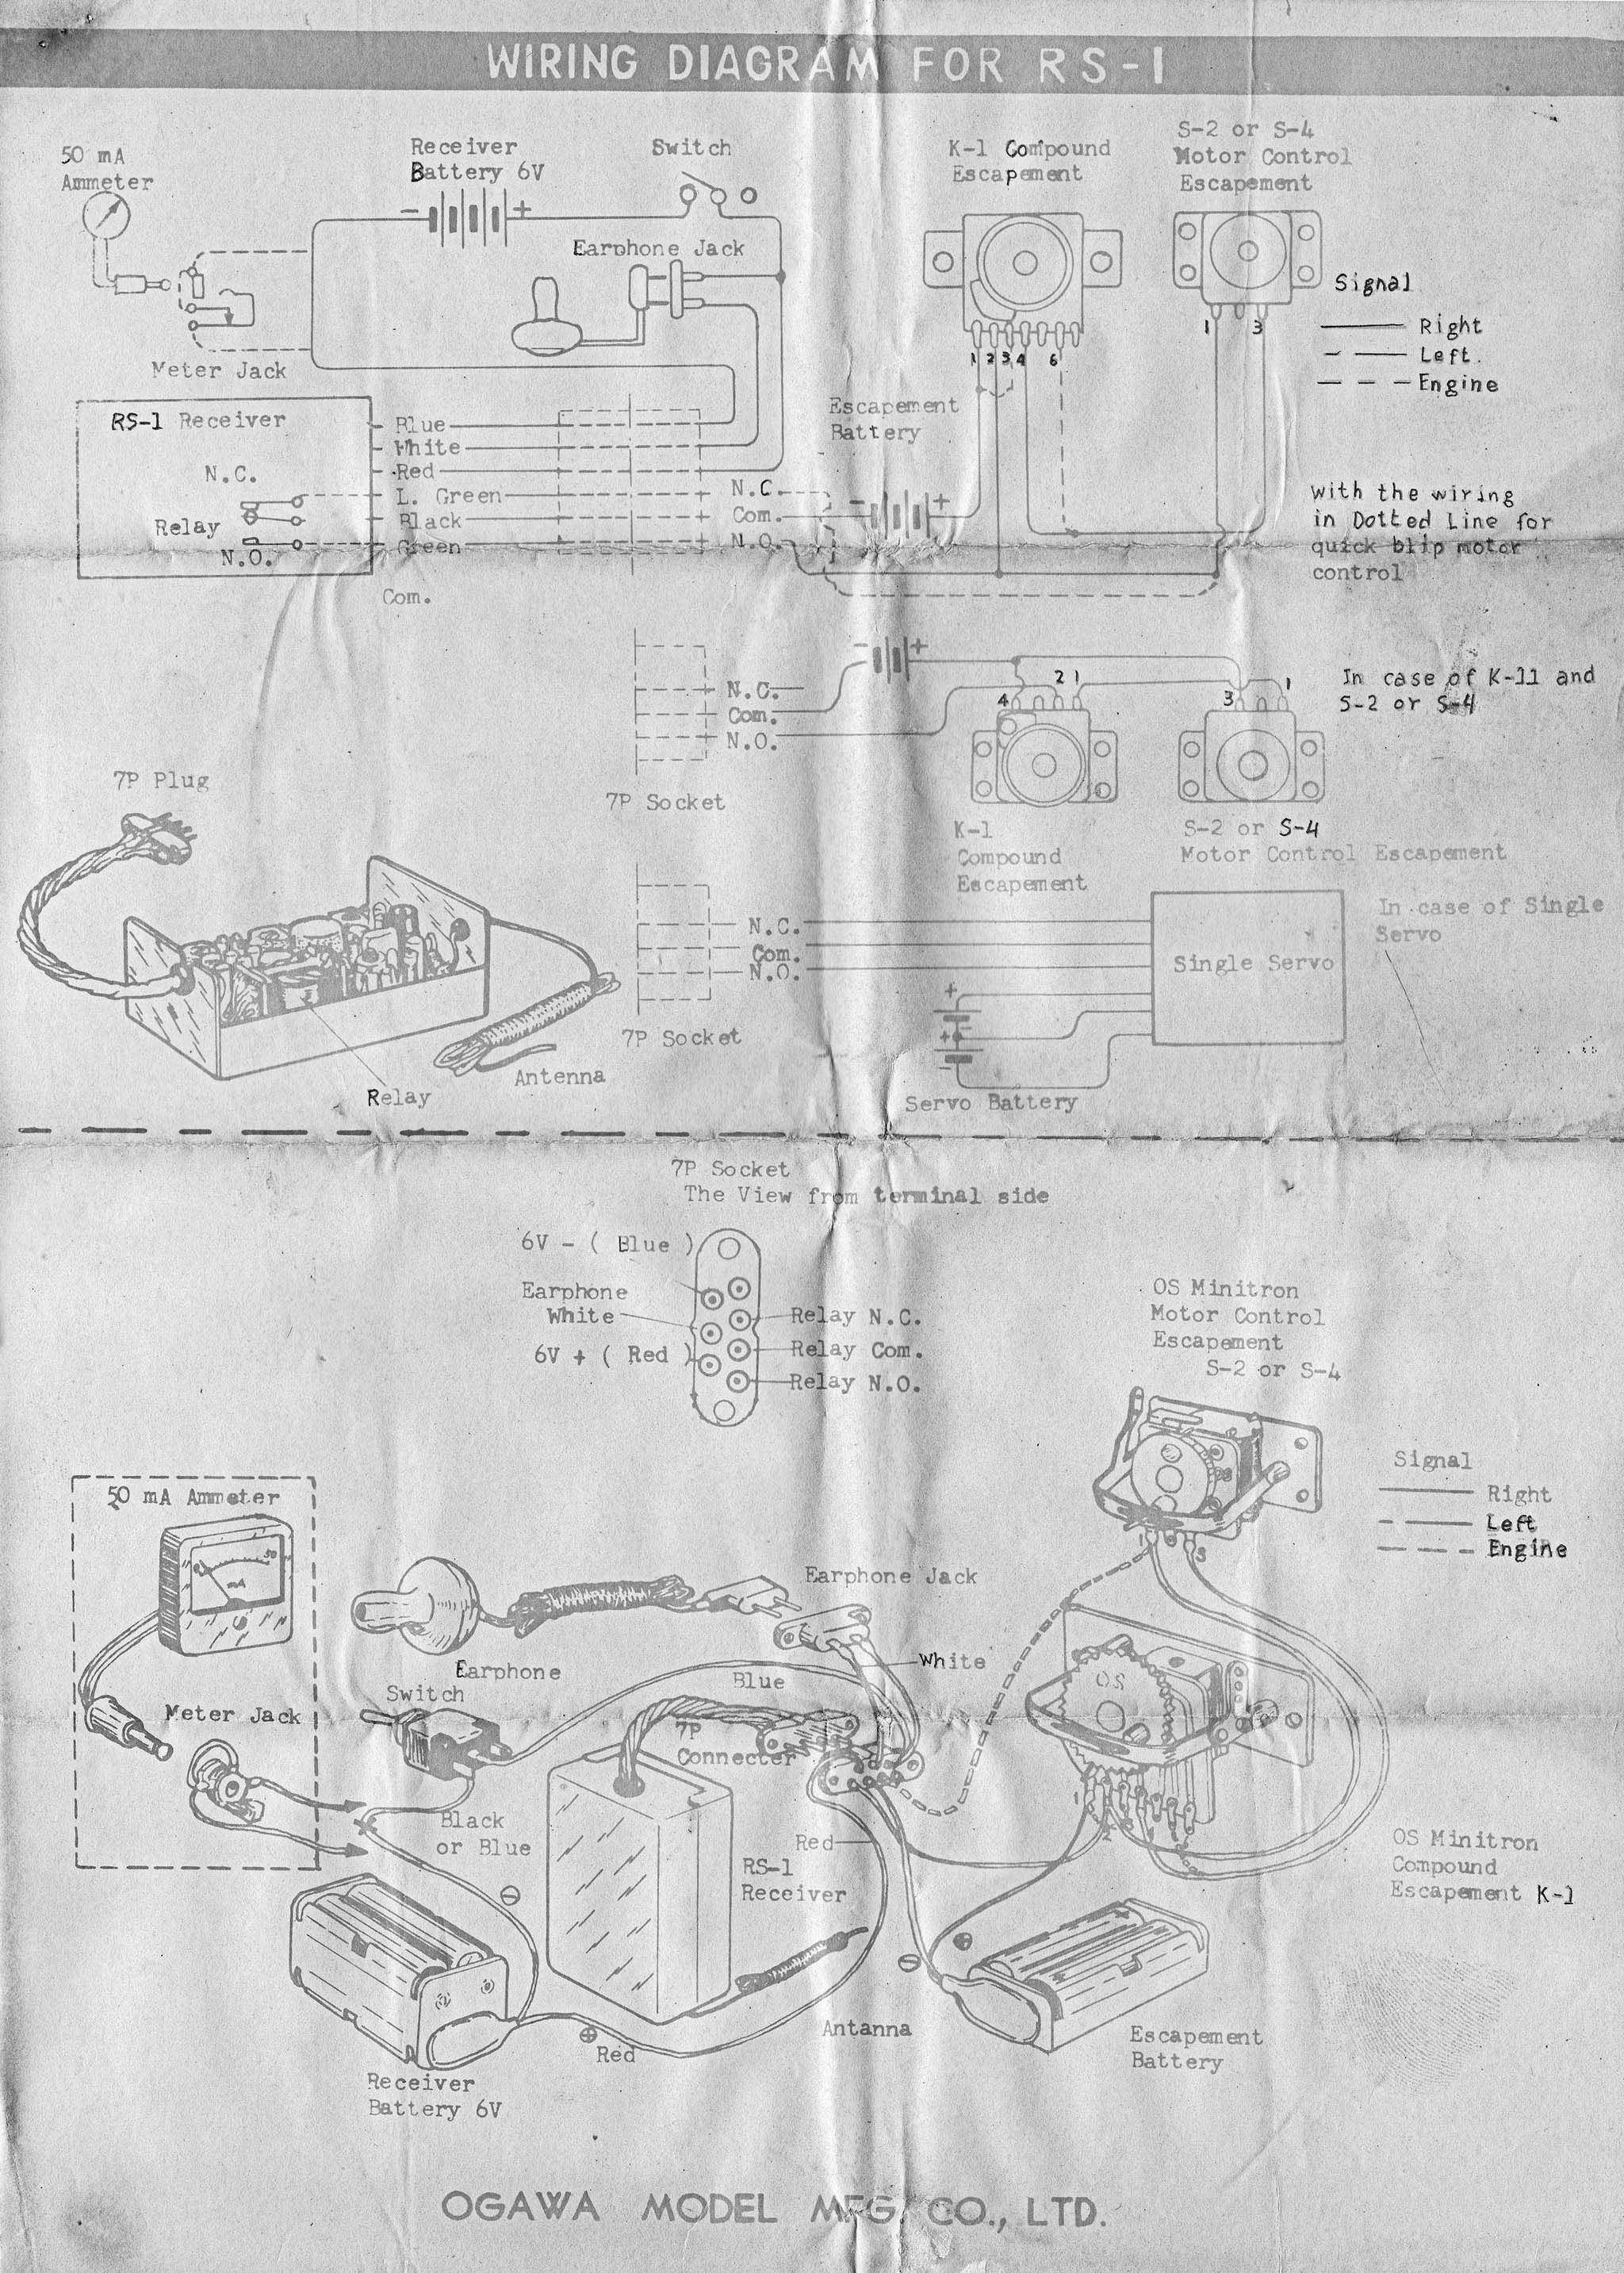 WIRING DIAGRAM FOR RS-1
50 mA
Ammeter
Receiver
Battery 6V
Switch
K-1 Compound
Escapement
S-2 or S-4
Motor Control
Escapement
- +
Earphone Jack
Meter Jack
1 2 3 4 6
1 3
Signal
Right
Left.
Engine
Escapement
Battery
RS-1 Receiver
N.C.
Relay
N.O.
Blue
White
Red
L. Green
Black
Green
Com.
N.C.
Com.
N.O.
- +
with the wiring
in Dotted Line for
quick blip motor
control
- +
N.C.
Com.
N.O.
7P Socket
4 2 1
3 1
In case of K-11 and
S-2 or S-4
K-1
Compound
Escapement
S-2 or S-4
Motor Control Escapement
7P Plug
Relay
Antenna
N.C.
Com.
N.O.
7P Socket
Single Servo
In case of Single
Servo
+
+
-
Servo Battery
7P Socket
The View from terminal side
6V - ( Blue )
Earphone
White
6V + ( Red )
Relay N.C.
Relay Com.
Relay N.O.
OS Minitron
Motor Control
Escapement
S-2 or S-4
Signal
Right
Left
Engine
50 mA Ammeter
0 50
mA
Meter Jack
Earphone
Earphone Jack
White
Switch
Blue
7P
Connecter
Black
or Blue
Red
RS-1
Receiver
1 3
OS
1 2 3
OS Minitron
Compound
Escapement K-1
Antanna
Red
Receiver
Battery 6V
Escapement
Battery
OGAWA MODEL MFG. CO., LTD.